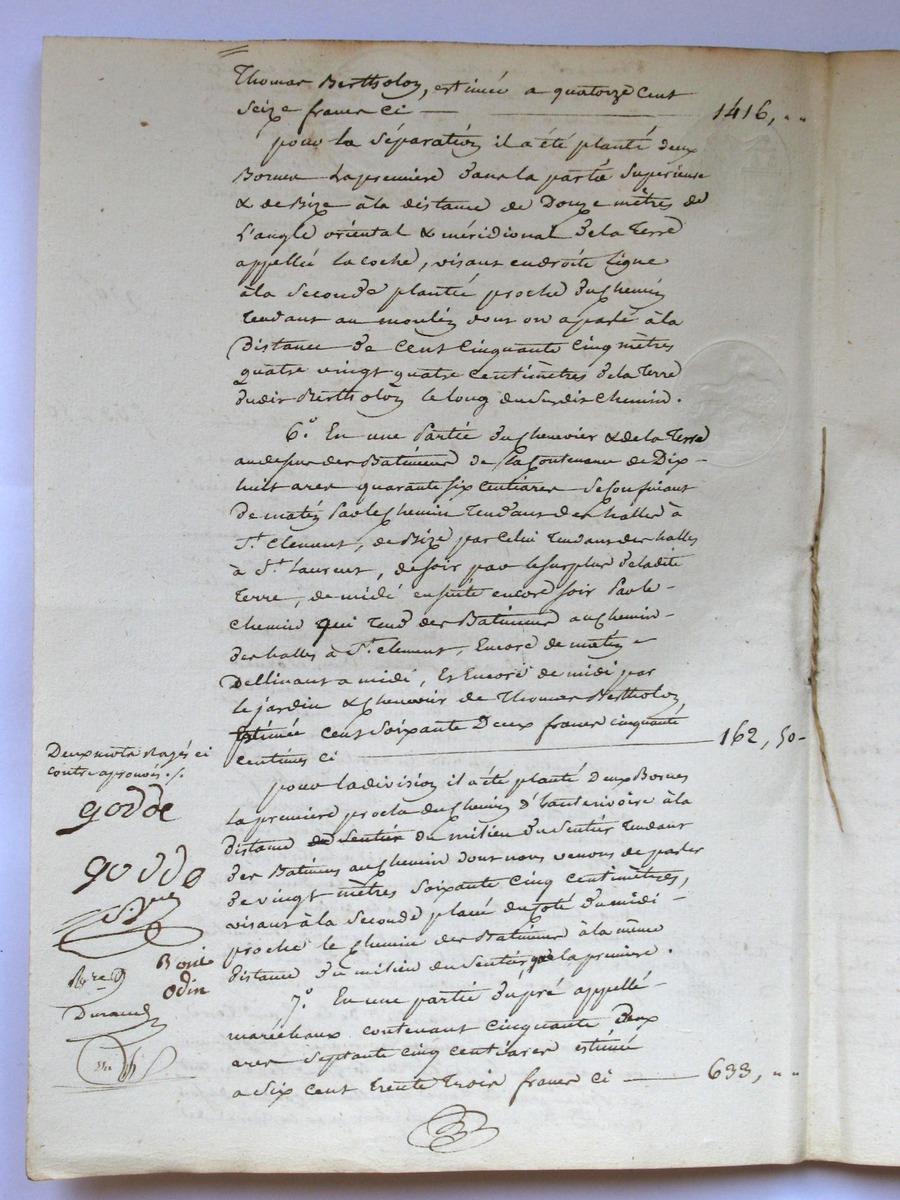 Thomas Bertholon, estimée a quatorze cent
seize francs ci — 1416, " "
pour la séparation il a été planté deux
Bornes La premiere dans la partie Superieure
& de Bize à la distance de Douze mètres de
L'angle oriental & méridional de la Terre
appellée la coche, visant en droite ligne
à la Seconde plantée proche du Chemin
tendant au moulin dont on a parlé à la
Distance de Cent Cinquante Cinq mètres
quatre vingt quatre centimètres de la Terre
dudit Bertholon le long du Susdit Chemin.
6.° En une Partie du Chenevier & de la Terre
au dessus des Batiments de la Contenance de Dix-
huit ares quarante six centiares Se Confinant
De matin Par le Chemin Tendant des halles à
S.t Clement, de Bize par Celui Tendant des halles
à S.t Laurent, de Soir par le Surplus de ladite
Terre, de midi ensuite encore Soir Par le -
Chemin qui Tend des Batiments au Chemin -
des halles à S.t Clement, Encore de matin -
Declinant a midi, Et Encore de midi par
le jardin & Chenevier de Thomas Bertholon,
Estimée Cent Soixante Deux francs cinquante
Centimes ci — 162, 50 -
pour la division il a été planté deux Bornes
la premiere proche du Chemin d' à la
Distance du Sentier du milieu du Sentier Tendant
des Batiments au Chemin dont nous venons de parler
de vingt mètres Soixante Cinq Centimètres,
visant à la Seconde placé du Coté du midi -
proche le Chemin des Batiments à la même
distance du milieu du Sentier que la premiere.
7.° En une partie du pré appellé -
maréchaux contenant Cinquante Deux
ares Septante Cinq Centiares estimée
a Six Cent Trente Trois francs Ci — 633, " "
Deux mots rayés ci
contre aprouvés ./.
godde
godde
Bonie
Odin
Durand